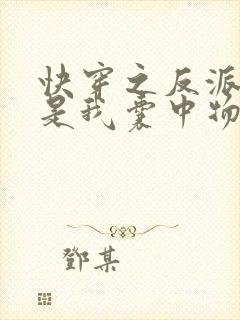 快穿之反派
是我囊中物
鄧某